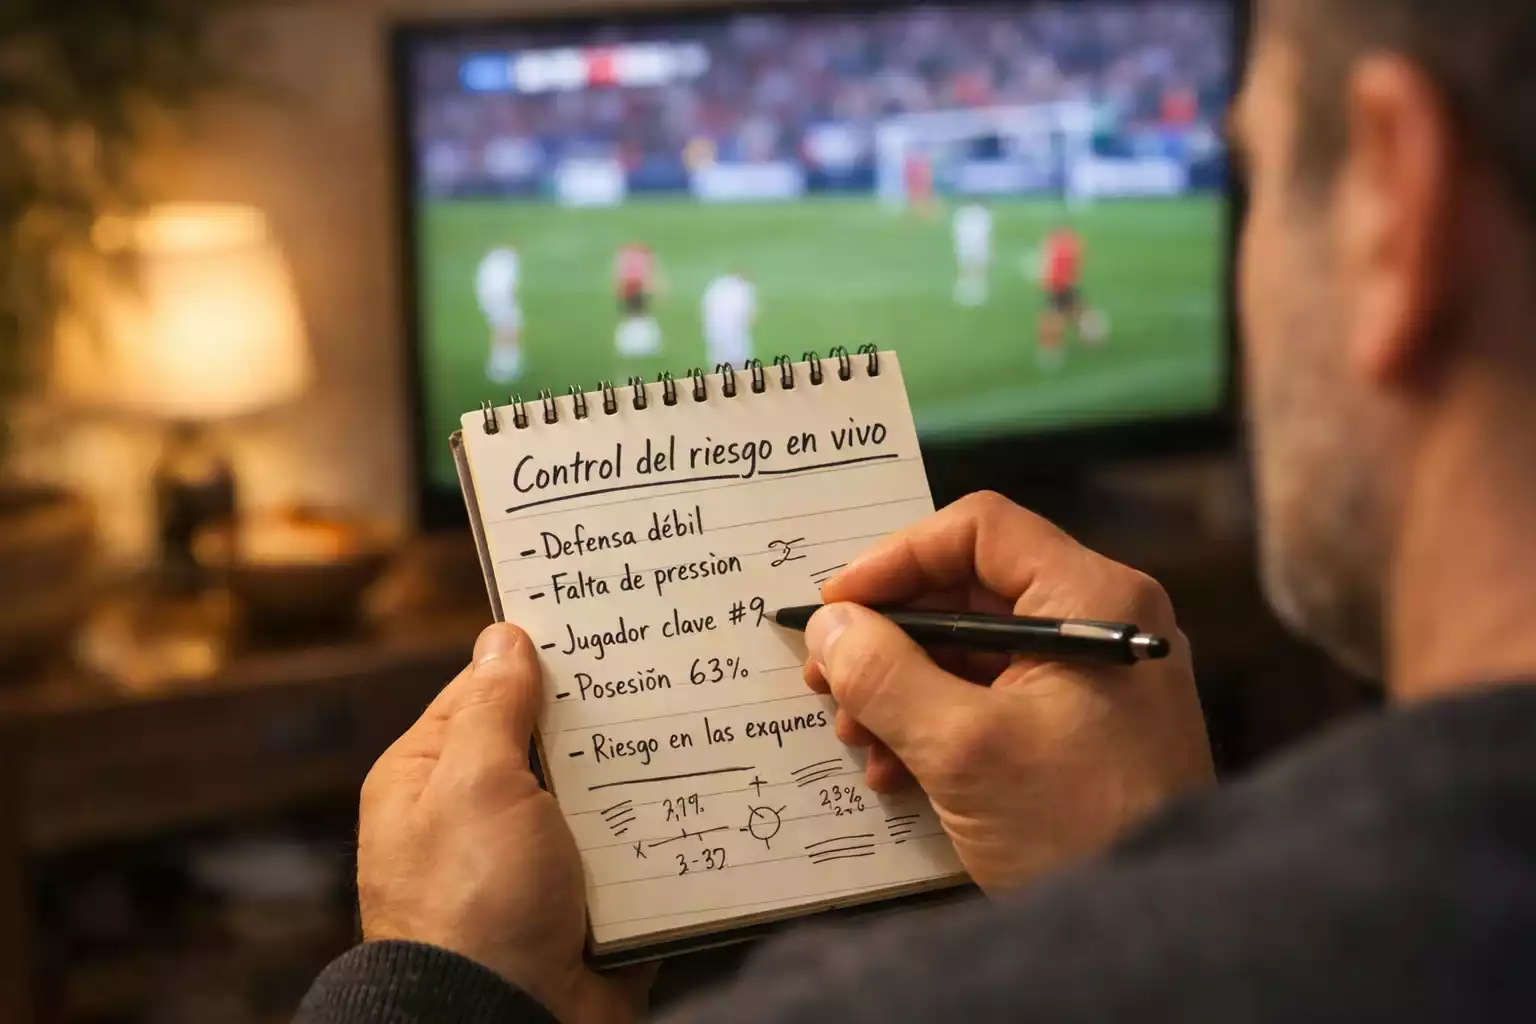 Control del riesgo en vivo
- Defensa débil
- Falta de pression
- Jugador clave #9
- Posesiõn 63%
- Riesgo en las exqunes
23%
3-37